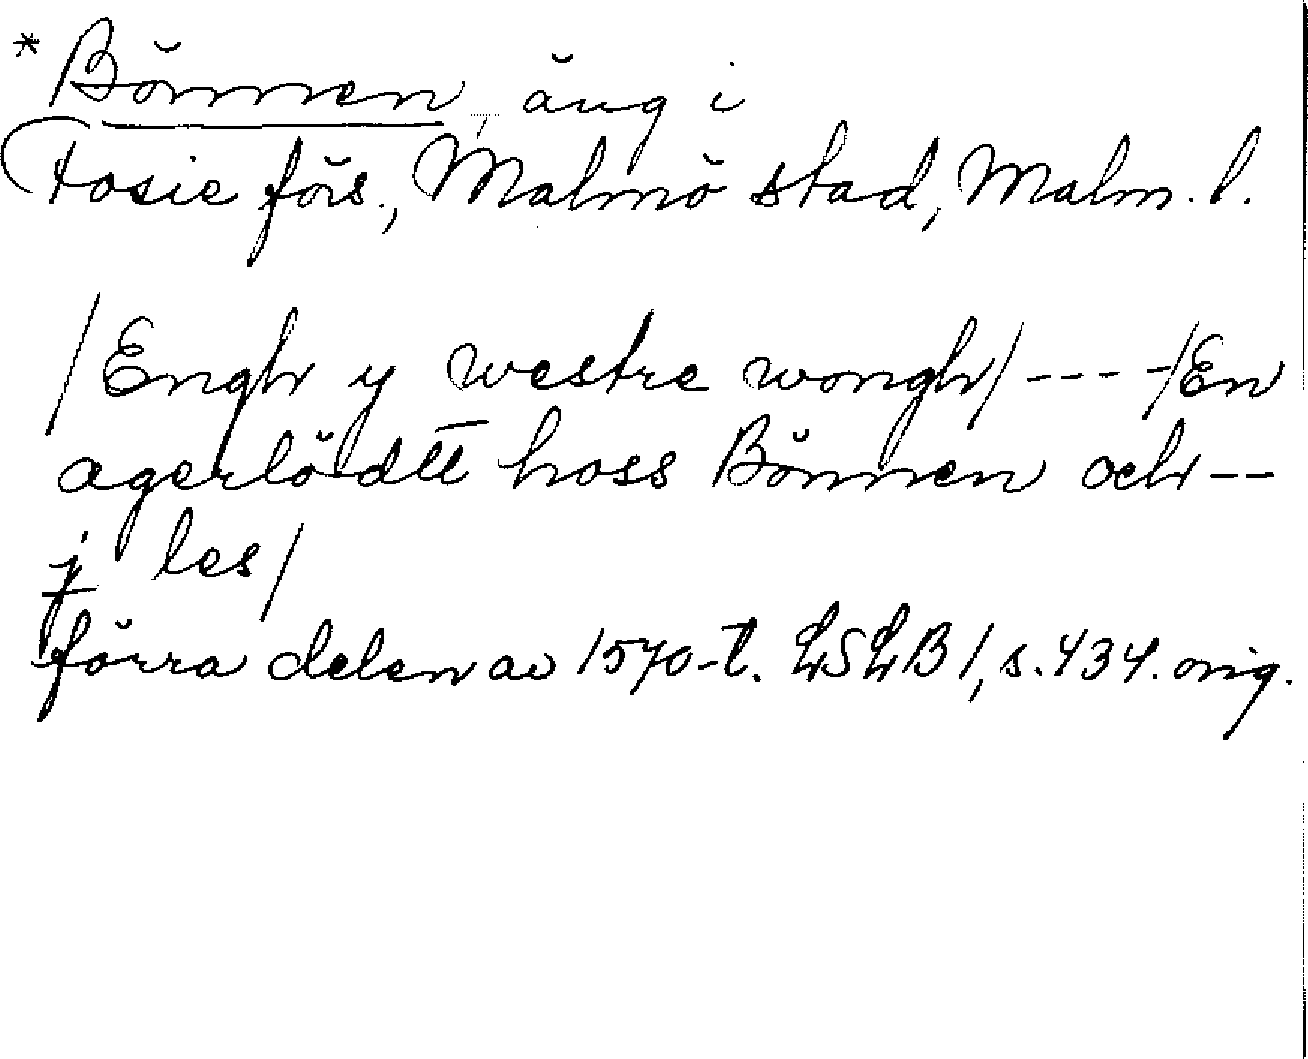 *Bönnen, äng i
Fosie förs., Malmö stad, Malm. l.
/Engh y westre wongh/ - - - -/En
agerlödtt hoss Bönnen och - -
j les/
förra delen av 1570-t. LSLB 1, s. 434. orig.